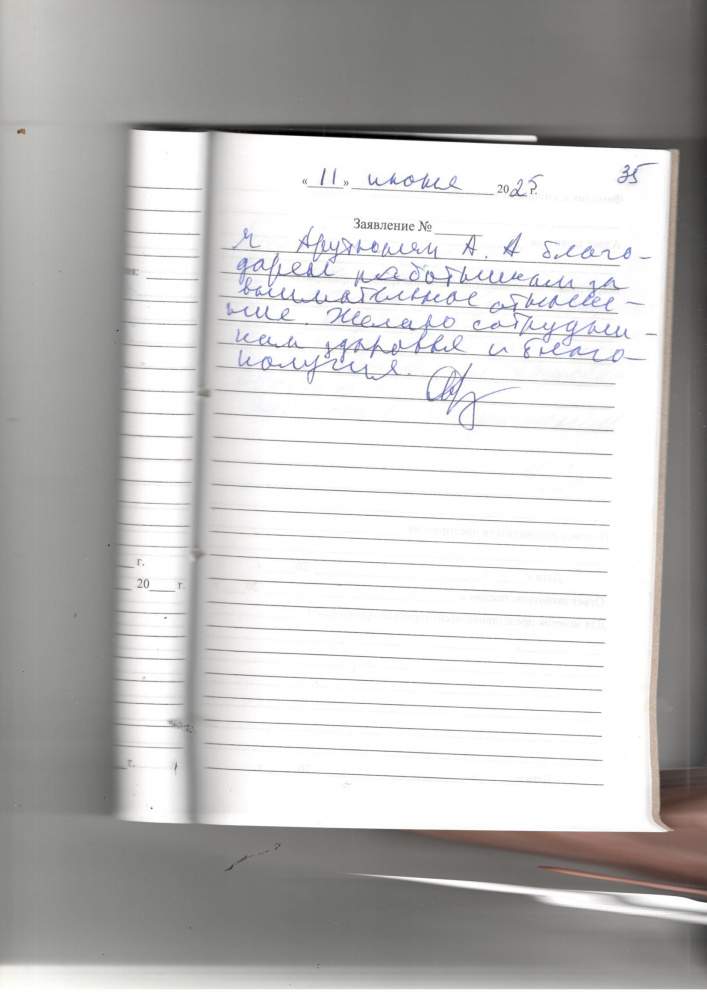 35
«11» июня 2025 г.
Заявление №
Я Арутюнян А. А благо-
дарен работникам за
внимательное отноше-
ние. Желаю сотрудни-
кам здоровья и благо-
получия.
г.
20 г.
г.